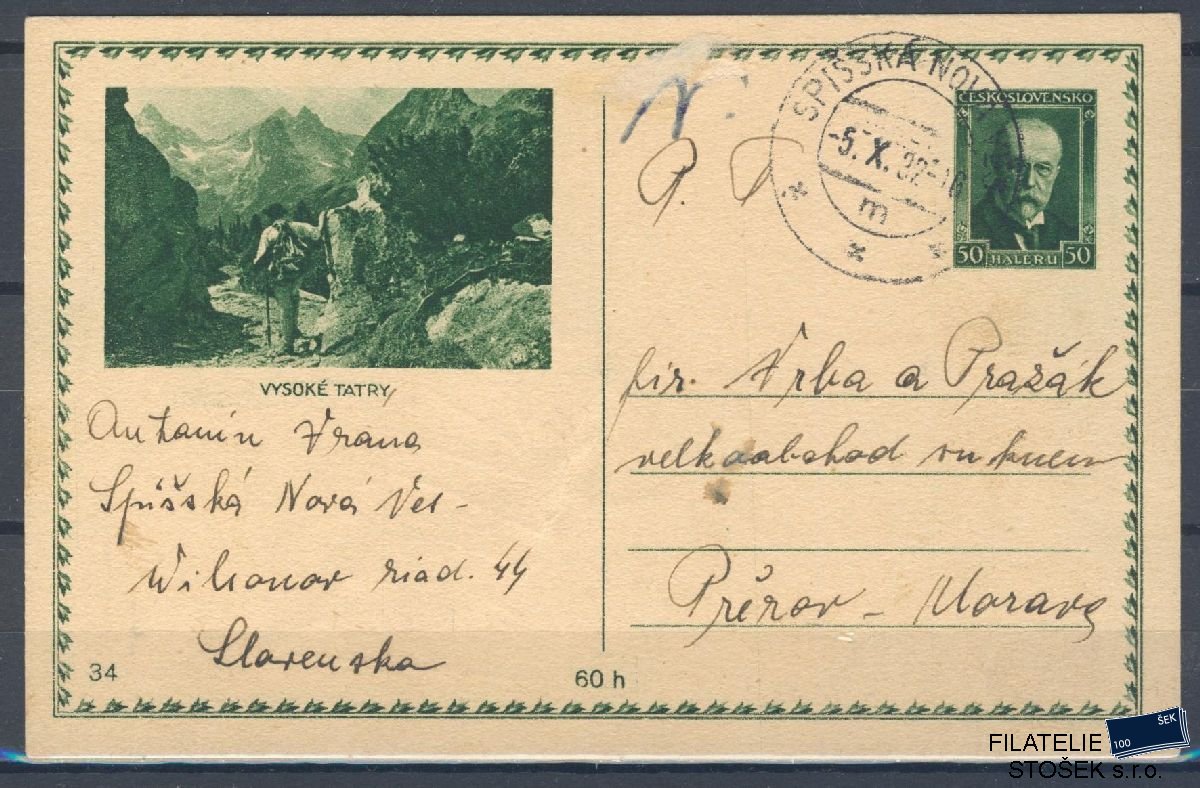 VYSOKÉ TATRY
Antonín Vrana
Spišská Nová Ves -
Wilsonov riad. 44
Slovenska
34
60 h
P. T.
SPIŠSKÁ NOV
-5. X. 32-16
m
ČESKOSLOVENSKO
50 HALÉŘŮ 50
fir. Vrba a Pražák
velkoobchod suknem
Přérov - Morava
FILATELIE
STOŠEK s.r.o.
100 ŠEK